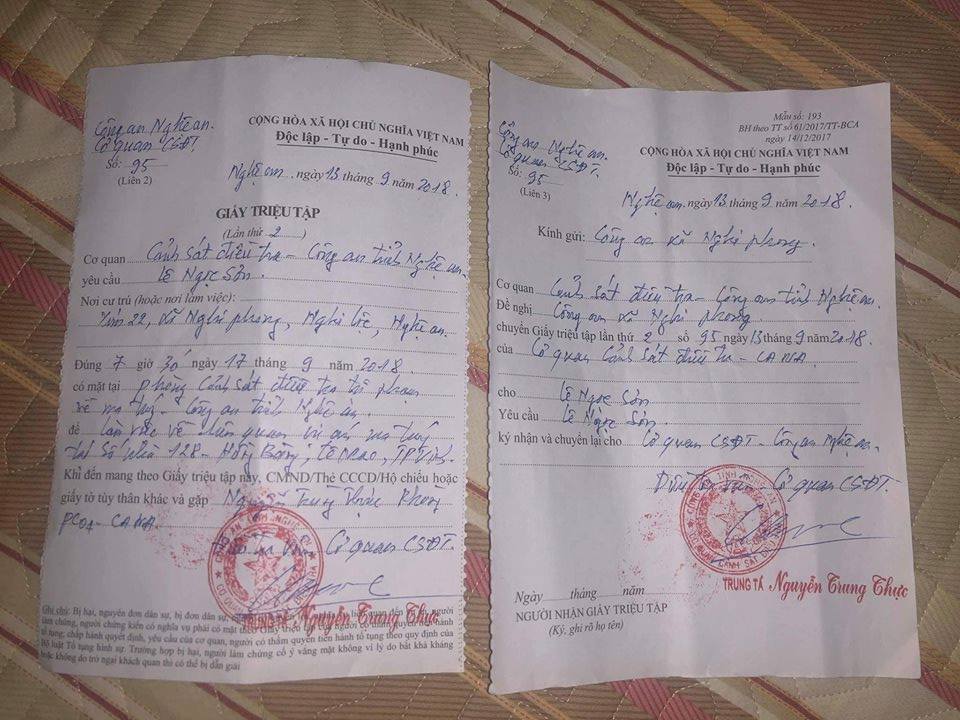 Công an Nghệ an.
Cơ quan CSĐT.
Số: 95
(Liên 2)
CỘNG HÒA XÃ HỘI CHỦ NGHĨA VIỆT NAM
Độc lập - Tự do - Hạnh phúc
Nghệ an, ngày 13 tháng 9 năm 2018.
GIẤY TRIỆU TẬP
(Lần thứ 2)
Cơ quan Cảnh sát điều tra - Công an tỉnh Nghệ an.
yêu cầu Lê Ngọc Sơn.
Nơi cư trú (hoặc nơi làm việc):
Xóm 22, xã Nghi phong, Nghi lộc, Nghệ an.
Đúng 7 giờ 30 ngày 17 tháng 9 năm 2018.
có mặt tại phòng Cảnh sát điều tra tội phạm
về ma túy - Công an tỉnh Nghệ an.
để làm việc về liên quan vụ án ma túy
tại Số nhà 128 - Hồng Bàng, Lê Mao, TP Vinh.
Khi đến mang theo Giấy triệu tập này, CMND/Thẻ CCCD/Hộ chiếu hoặc
giấy tờ tùy thân khác và gặp Nguyễn Trung Thực
PC04 - CANA.
Cơ quan CSĐT.
TRUNG TÁ Nguyễn Trung Thực
Ghi chú: Bị hại, nguyên đơn dân sự, bị đơn dân sự, người
làm chứng, người chứng kiến có nghĩa vụ phải có mặt theo Giấy triệu tập của người có thẩm quyền tiến hành
tố tụng; chấp hành quyết định, yêu cầu của cơ quan, người có thẩm quyền tiến hành tố tụng theo quy định của
Bộ luật Tố tụng hình sự. Trường hợp bị hại, người làm chứng cố ý vắng mặt không vì lý do bất khả kháng
hoặc không do trở ngại khách quan thì có thể bị dẫn giải
Công an Nghệ an.
Cơ quan CSĐT.
Số: 95
(Liên 3)
Mẫu số: 193
BH theo TT số 61/2017/TT-BCA
ngày 14/12/2017
CỘNG HÒA XÃ HỘI CHỦ NGHĨA VIỆT NAM
Độc lập - Tự do - Hạnh phúc
Nghệ an, ngày 13 tháng 9 năm 2018.
Kính gửi: Công an xã Nghi phong.
Cơ quan Cảnh sát điều tra - Công an tỉnh Nghệ an.
Đề nghị Công an xã Nghi phong.
chuyển Giấy triệu tập lần thứ 2 số 95 ngày 13 tháng 9 năm 2018.
của Cơ quan Cảnh sát điều tra - CANA
cho Lê Ngọc Sơn
Yêu cầu Lê Ngọc Sơn
ký nhận và chuyển lại cho Cơ quan CSĐT - Công an Nghệ an.
Điều tra viên Cơ quan CSĐT.
TRUNG TÁ Nguyễn Trung Thực
Ngày tháng năm
NGƯỜI NHẬN GIẤY TRIỆU TẬP
(Ký, ghi rõ họ tên)